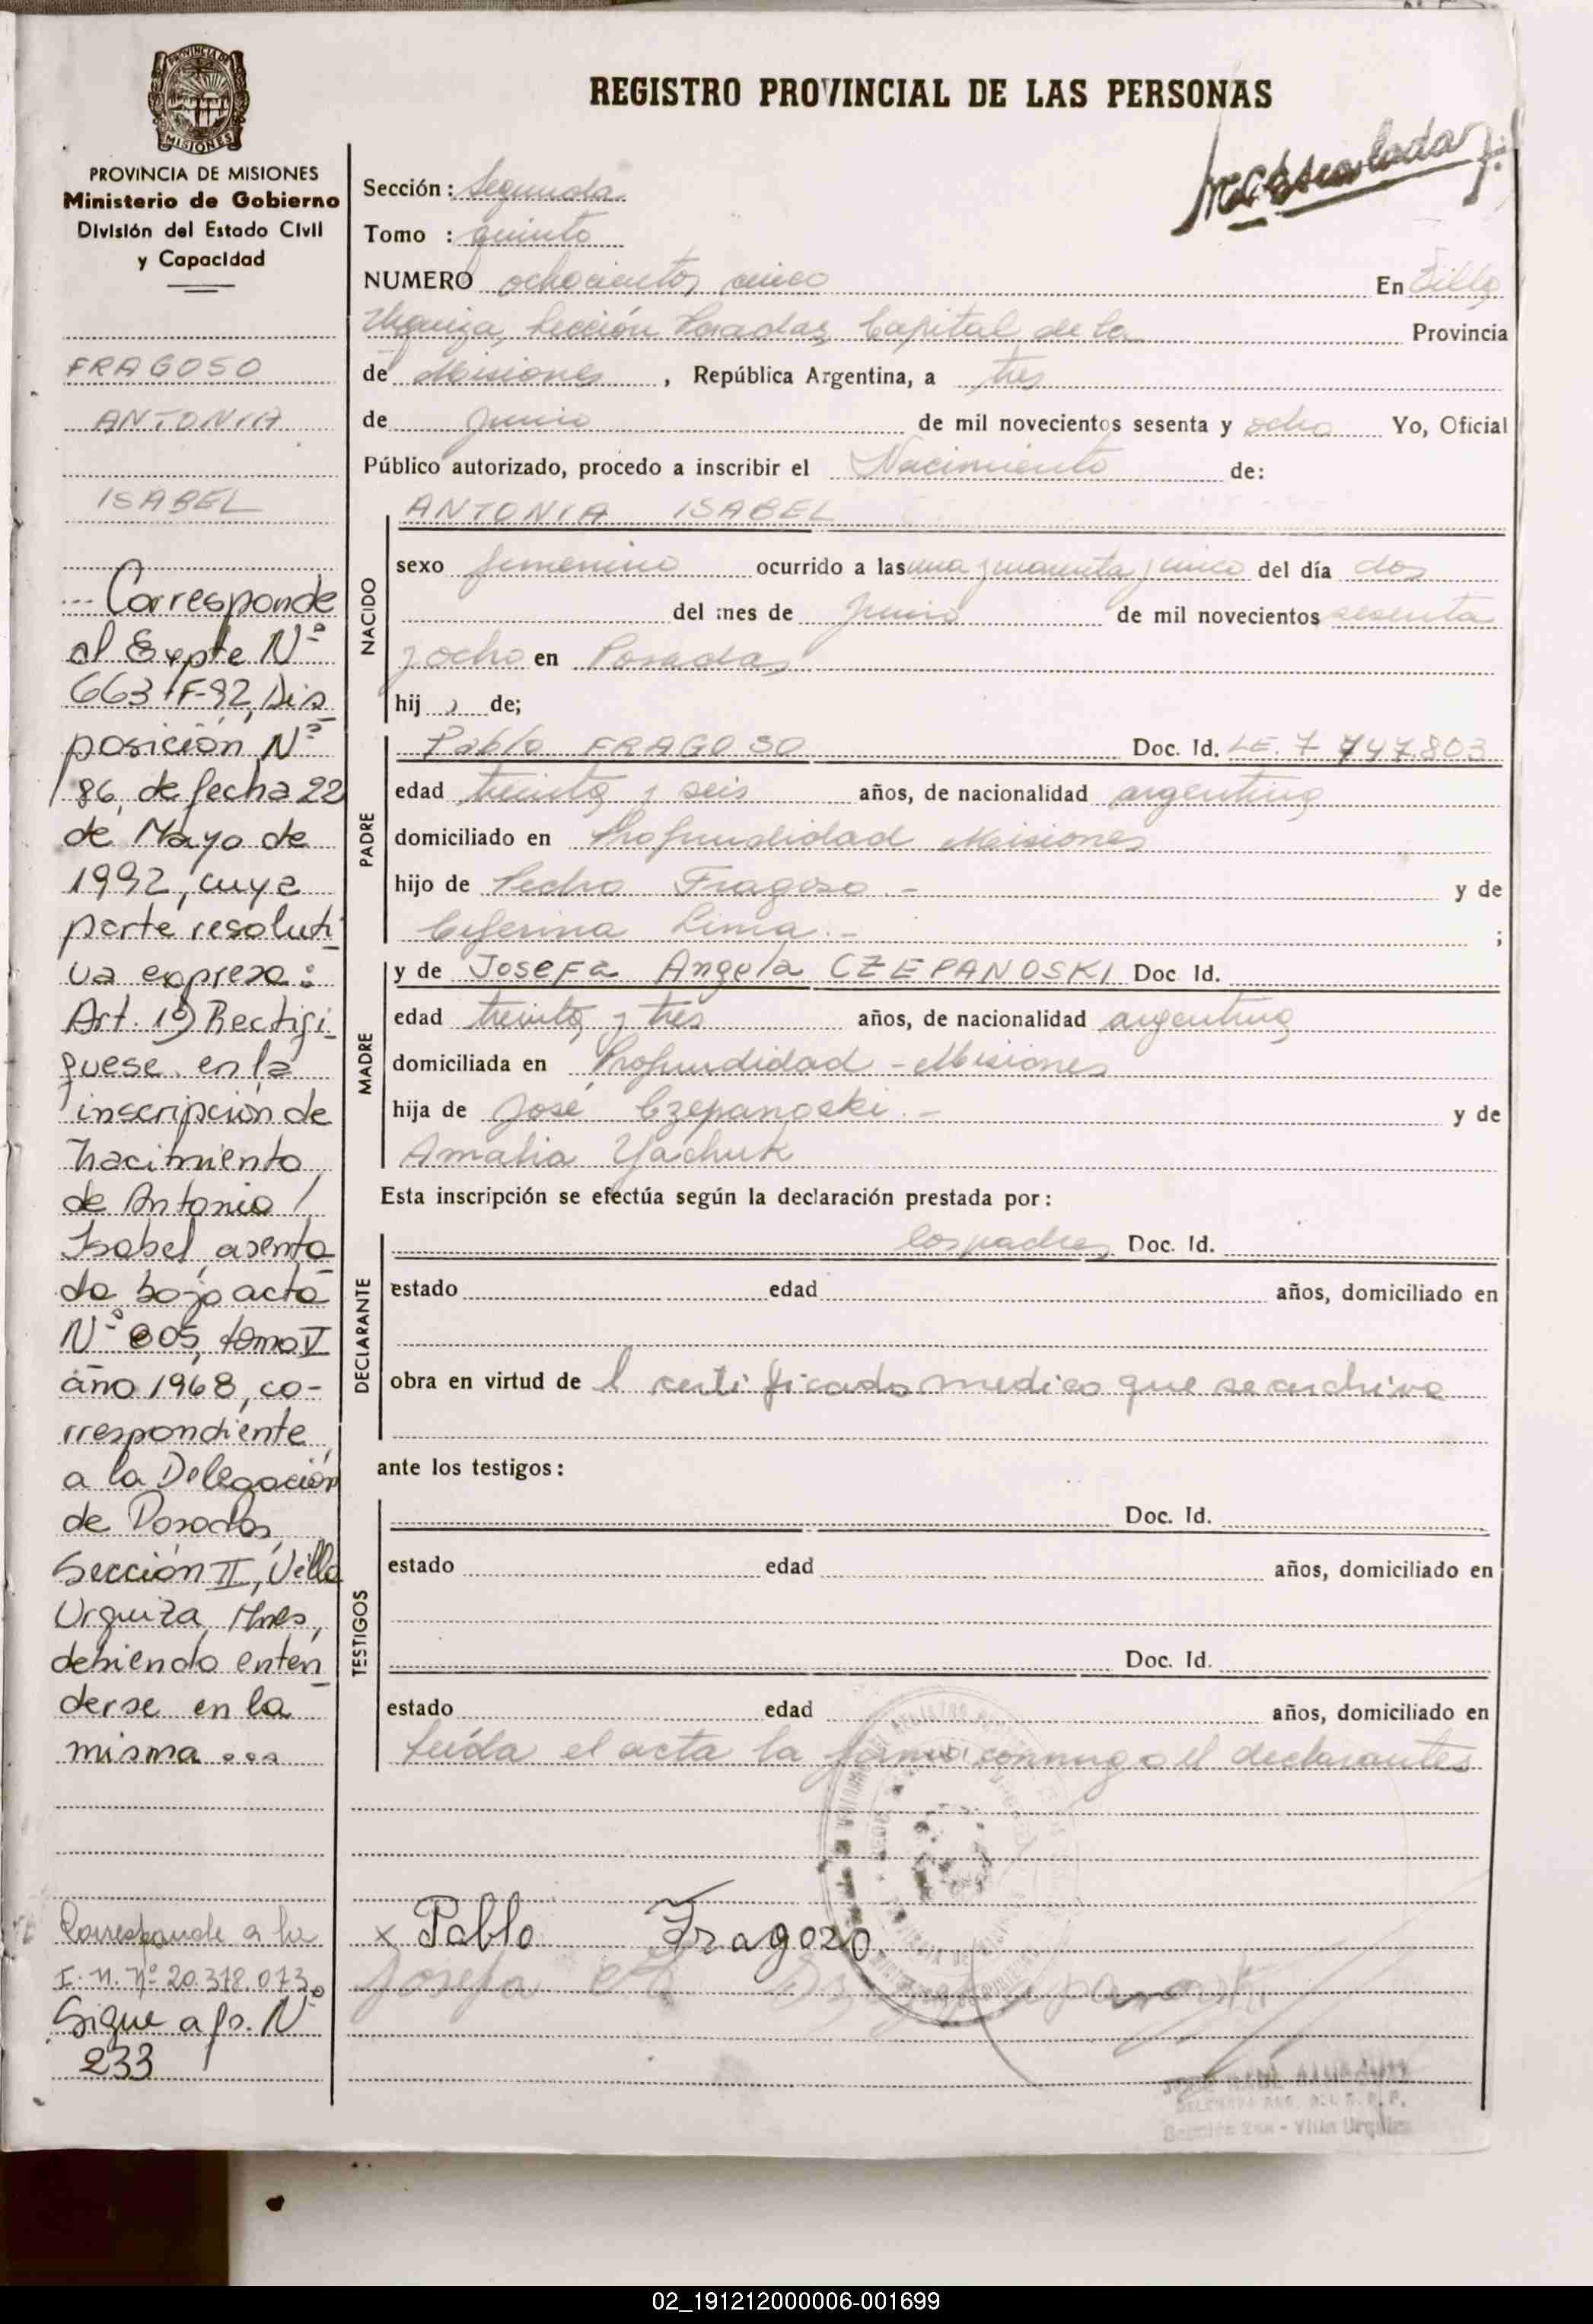 REGISTRO PROVINCIAL DE LAS PERSONAS
PROVINCIA DE MISIONES
MISIONES
PROVINCIA DE MISIONES
Ministerio de Gobierno
División del Estado Civil
y Capacidad
FRAGOSO
ANTONIA
ISABEL
... Corresponde
al Expte Nº
663-F-92, Dis
posición Nº
86, de fecha 22
de Mayo de
1992, cuya
parte resoluti
va expresa:
Art. 1º) Rectifi
quese en la
inscripción de
nacimiento
de Antonia
Isabel, asenta
da bajo acta
Nº 805, tomo V
año 1968, co-
rrespondiente
a la Delegación
de Posadas,
Sección II, Villa
Urquiza, Mnes,
debiendo enten
derse en la
misma ...
Corresponde a la
I. N. Nº 20.378.073
Sigue a fs. Nº
233
Sección: Segunda
Tomo : quinto
NUMERO ochocientos cinco En Villa
Urquiza, Sección Posadas, Capital de la Provincia
de Misiones, República Argentina, a tres
de Junio de mil novecientos sesenta y ocho Yo, Oficial
Público autorizado, procedo a inscribir el Nacimiento de:
NACIDO
ANTONIA ISABEL
sexo femenino ocurrido a las una y cuarenta y cinco del día dos
del mes de Junio de mil novecientos sesenta
y ocho en Posadas
hij a de;
PADRE
Pablo FRAGOSO Doc. Id. LE. 7 747.803
edad treinta y seis años, de nacionalidad argentina
domiciliado en Profundidad Misiones
hijo de Pedro Fragoso.- y de
Ceferina Lima.- ;
MADRE
y de Josefa Angela CZEPANOSKI Doc. Id.
edad treinta y tres años, de nacionalidad argentina
domiciliada en Profundidad - Misiones
hija de José Czepanoski.- y de
Amalia Yachuk
Esta inscripción se efectúa según la declaración prestada por:
DECLARANTE
los padres Doc. Id.
estado edad años, domiciliado en
obra en virtud de l certificado medico que se archiva
ante los testigos:
TESTIGOS
Doc. Id.
estado edad años, domiciliado en
Doc. Id.
estado edad años, domiciliado en
Leída el acta la firma conmigo el declarantes
x Pablo Fragozo
Josefa
Sección 2da - Villa Urquiza
02_191212000006-001699